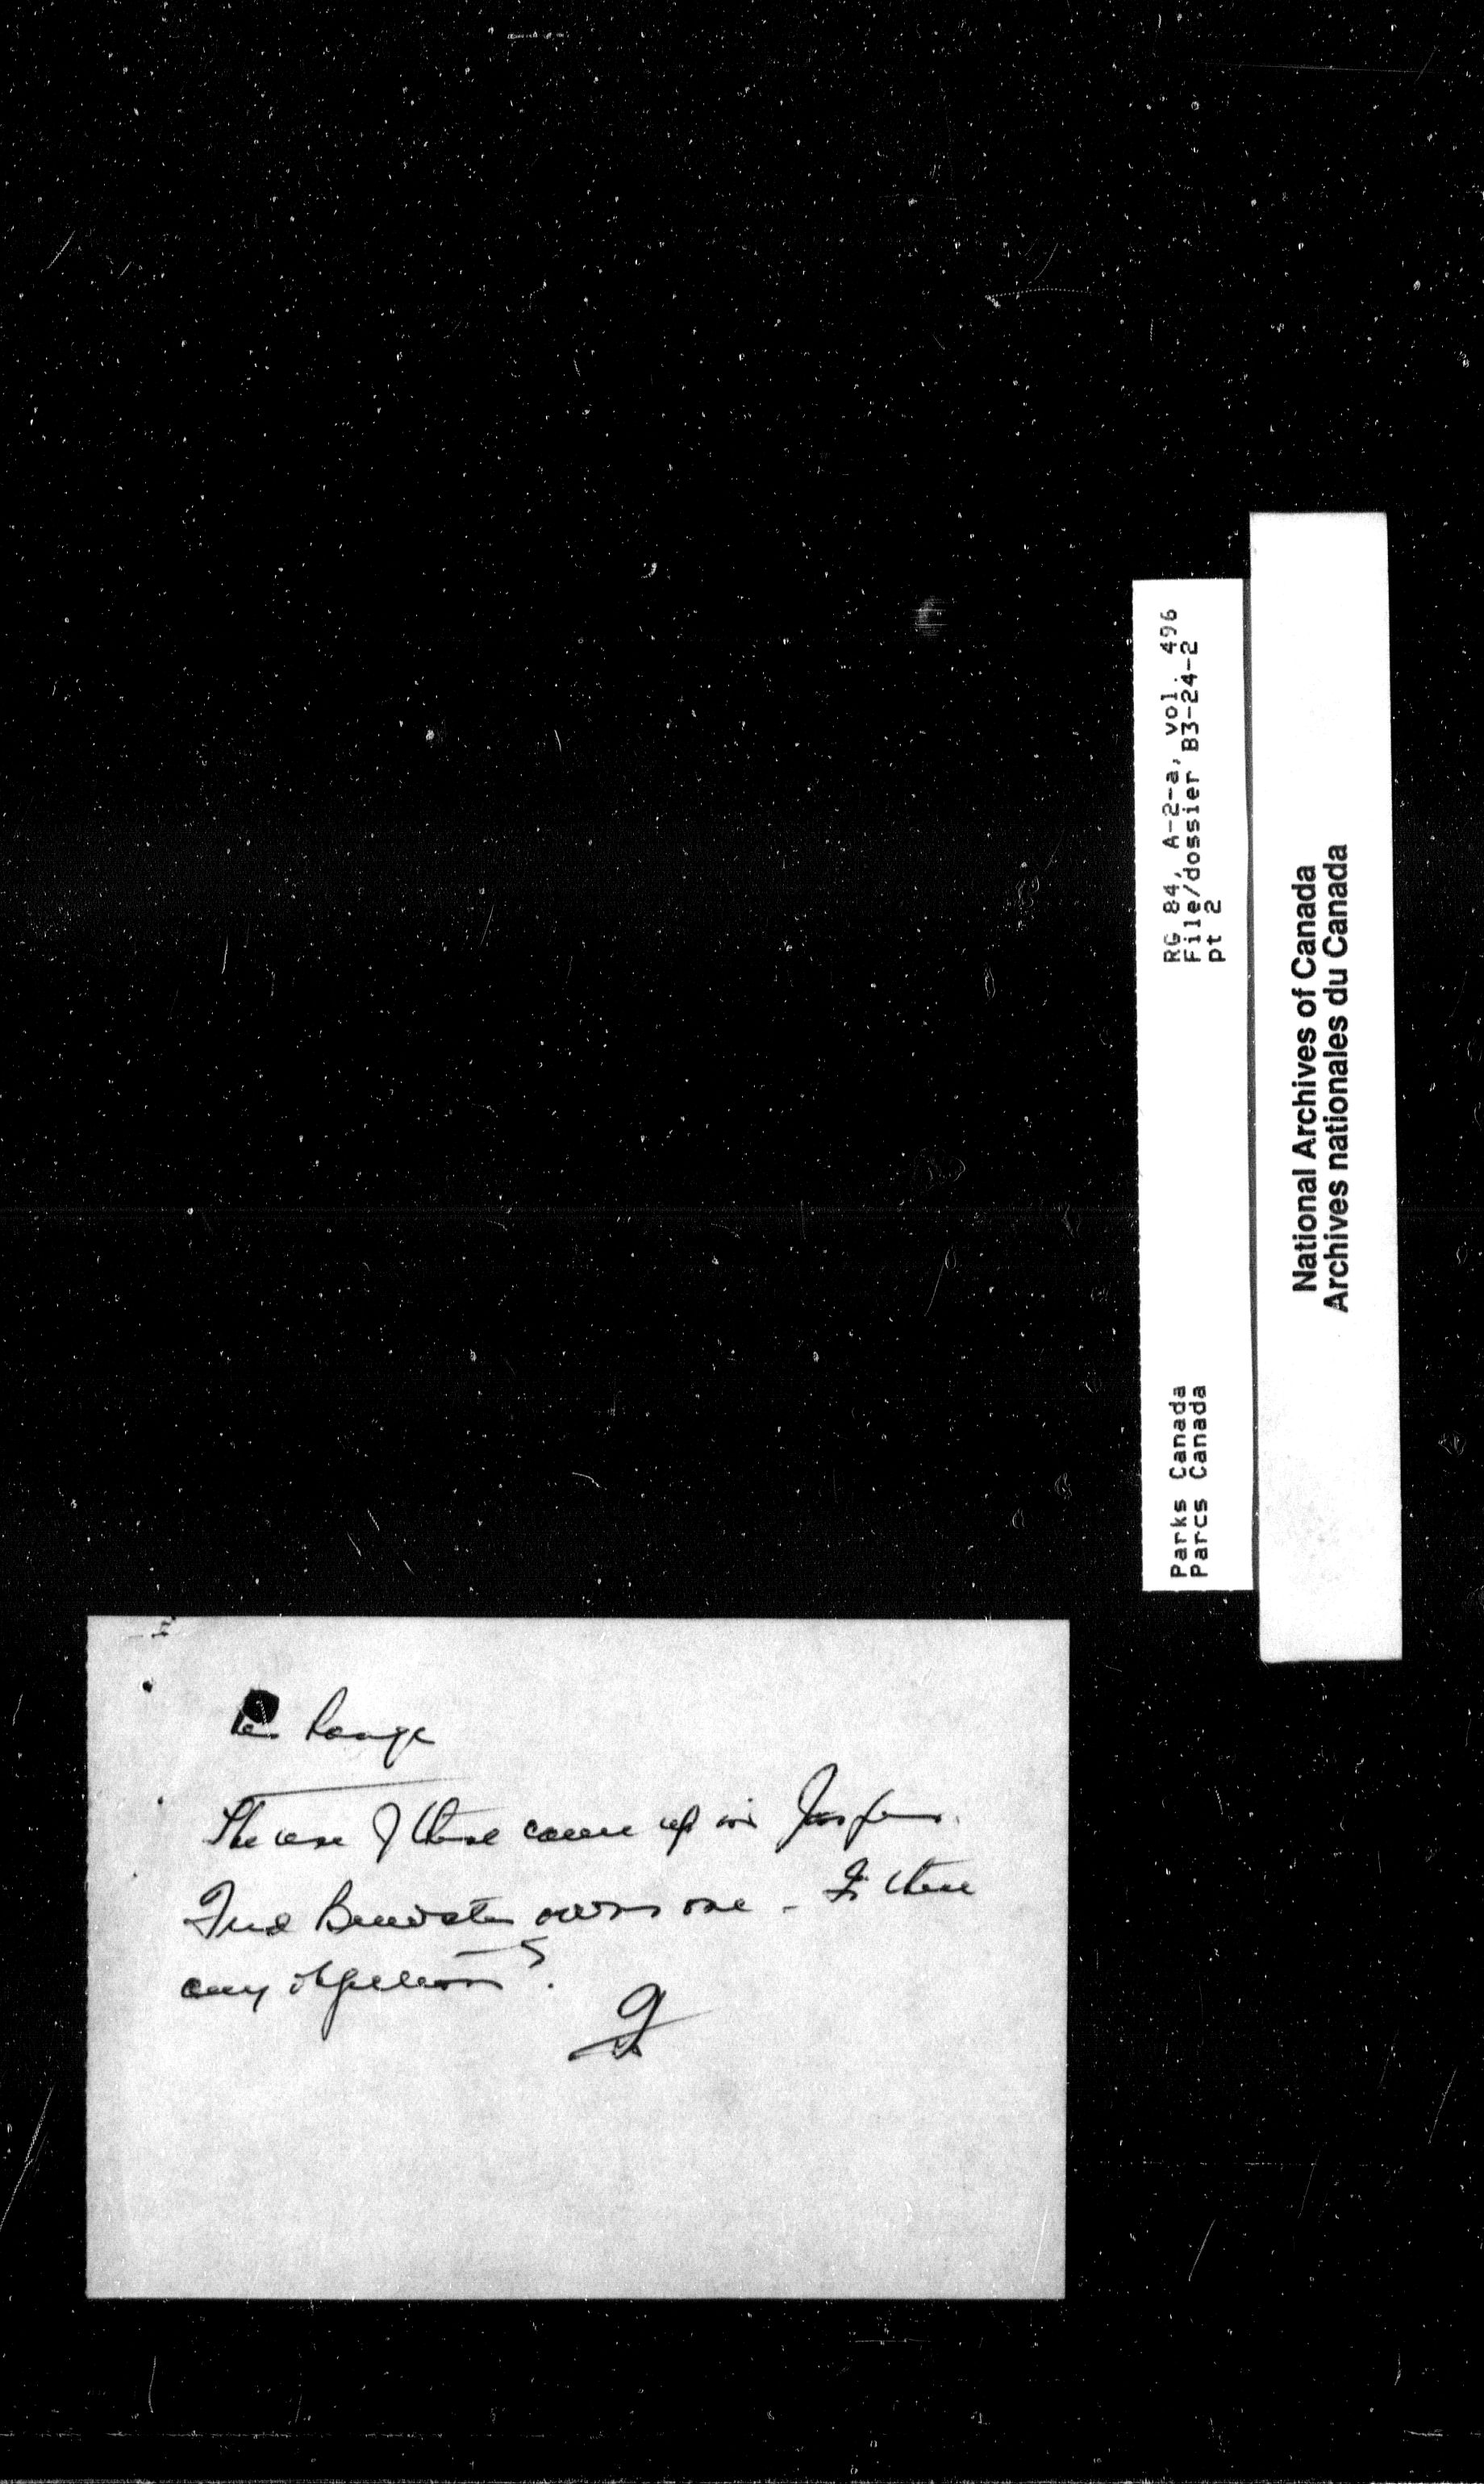 The use of these came up in Jasper.
Fred Brewster owns one - Is there
any objection?
RG 84, A-2-a, vol. 496
File/dossier B3-24-2
pt 2
Parks Canada
Parcs Canada
National Archives of Canada
Archives nationales du Canada